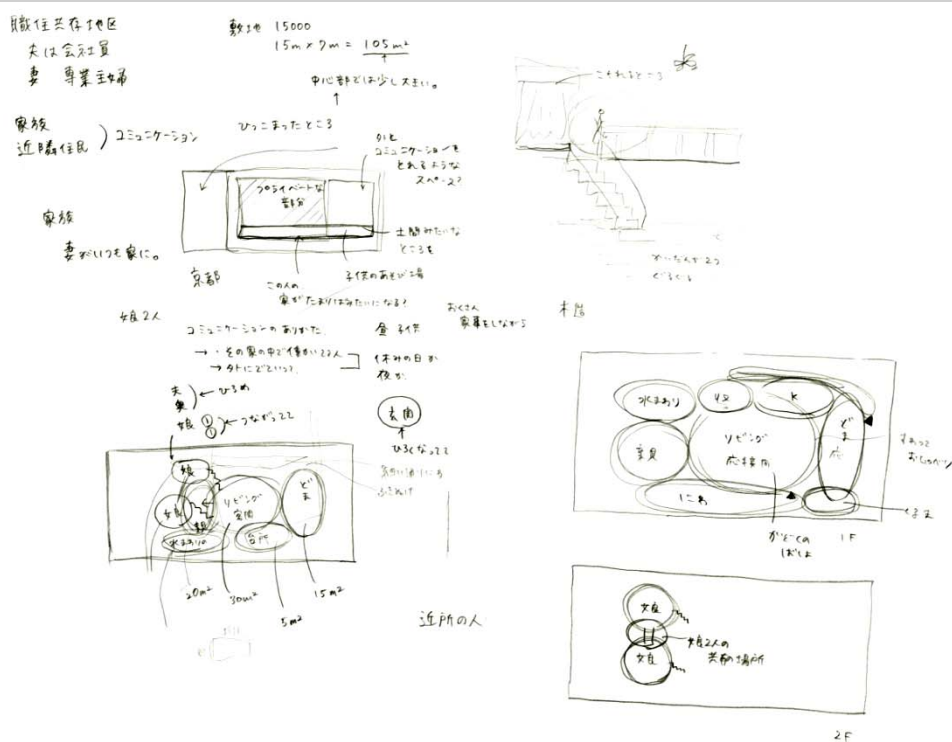 職住共存地区
夫は会社員
妻 専業主婦
敷地 15000
15m×7m = 105m²
中心部では少し大きい。
家族
近隣住民
コミュニケーション
ひっこまったところ
外と
コミュニケーションを
とれるような
スペース?
プライベートな
部分
土間みたいな
ところを
家族
妻がいつも家に。
京都
この人の
家がたまりばみたいになる?
子供のあそび場
娘2人
コミュニケーションのありかた
昼 子供
おくさん
家事をしながら
→・その家の中で
→
休みの日か
夜か
夫
奥
娘
ひろめ
つながってて
玄関
ひろくなってて
娘
娘
親
リビング
玄関
どま
水まわり
台所
20m²
30m²
5m²
15m²
近所の人
水まわり
K
寝
リビング
応接間
どま
応
にわ
すわって
おしゃべり
くるま
かぞくの
ばしょ
1F
娘
娘
娘2人の
共有の場所
2F